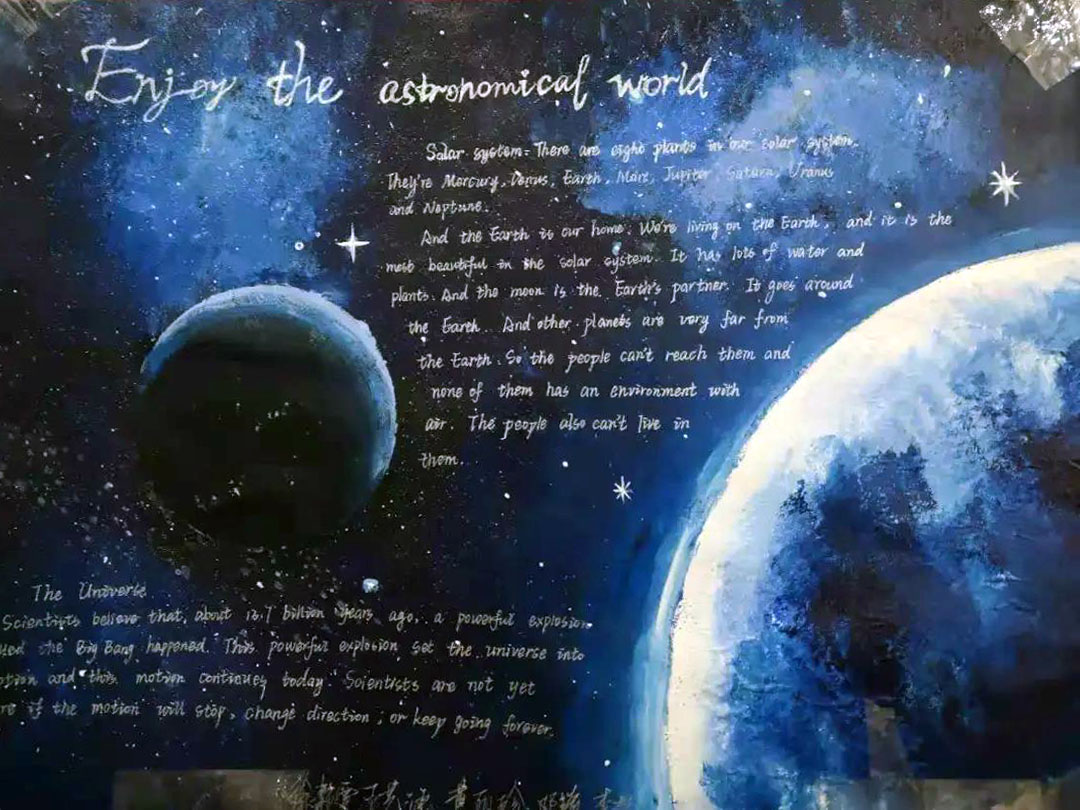 Enjoy the astronomical world
Solar system: There are eight plants in our solar system.
They're Mercury, Venus, Earth, Mars, Jupiter, Saturn, Uranus
and Neptune.
And the Earth is our home. We're living on the Earth, and it is the
most beautiful in the solar system. It has lots of water and
plants. And the moon is the Earth's partner. It goes around
the Earth. And other planets are very far from
the Earth. So the people can't reach them and
none of them has an environment with
air. The people also can't live in
them.
The Universe
Scientists believe that, about 13.7 billion years ago, a powerful explosion
the Big Bang happened. This powerful explosion set the universe into
and this motion continues today. Scientists are not yet
if the motion will stop, change direction, or keep going forever.